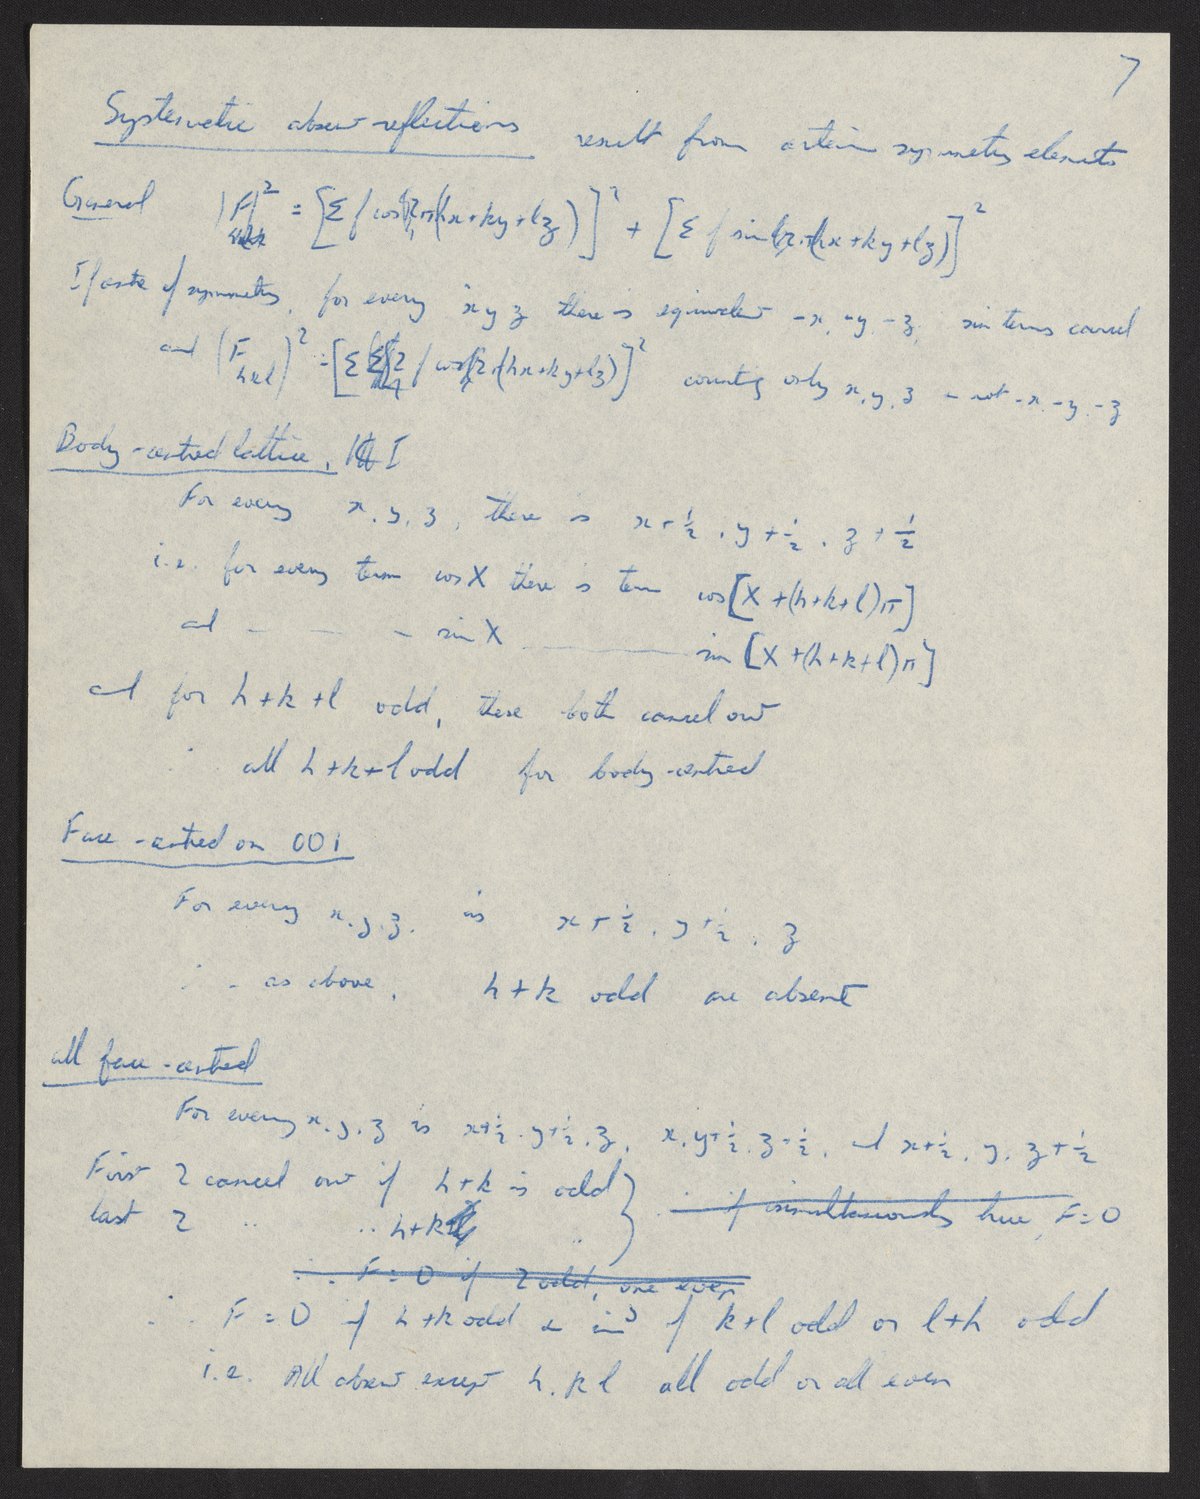 7
Systematic absent reflections result from certain symmetry elements
General |F|² = [Σ f cos 2π(hx+ky+lz)]² + [Σ f sin 2π(hx+ky+lz)]²
If centre of symmetry, for every x y z there is equivalent -x, -y -z, sin terms cancel
and |F hkl|² = [Σ 2 f cos 2π(hx+ky+lz)]² counting only x, y, z - not -x -y -z
Body-centred lattice, I
For every x, y, z, there is x+½, y+½, z+½
i.e. for every term cos X there is term cos[X+(h+k+l)π]
and - - - sin X sin [X+(h+k+l)π]
and for h+k+l odd, these both cancel out
∴ all h+k+l odd for body-centred
Face-centred on 001
For every x, y, z. is x+½, y+½, z
∴ as above, h+k odd are absent
all face-centred
For every x, y, z is x+½, y+½, z, x, y+½, z+½, and x+½, y, z+½
First 2 cancel out if h+k is odd } ∴ if simultaneously true, F=0
last 2 " " h+k "
∴ F=0 if 2 odd, one even
∴ F=0 if h+k odd & if k+l odd or l+h odd
i.e. All absent except h, k l all odd or all even